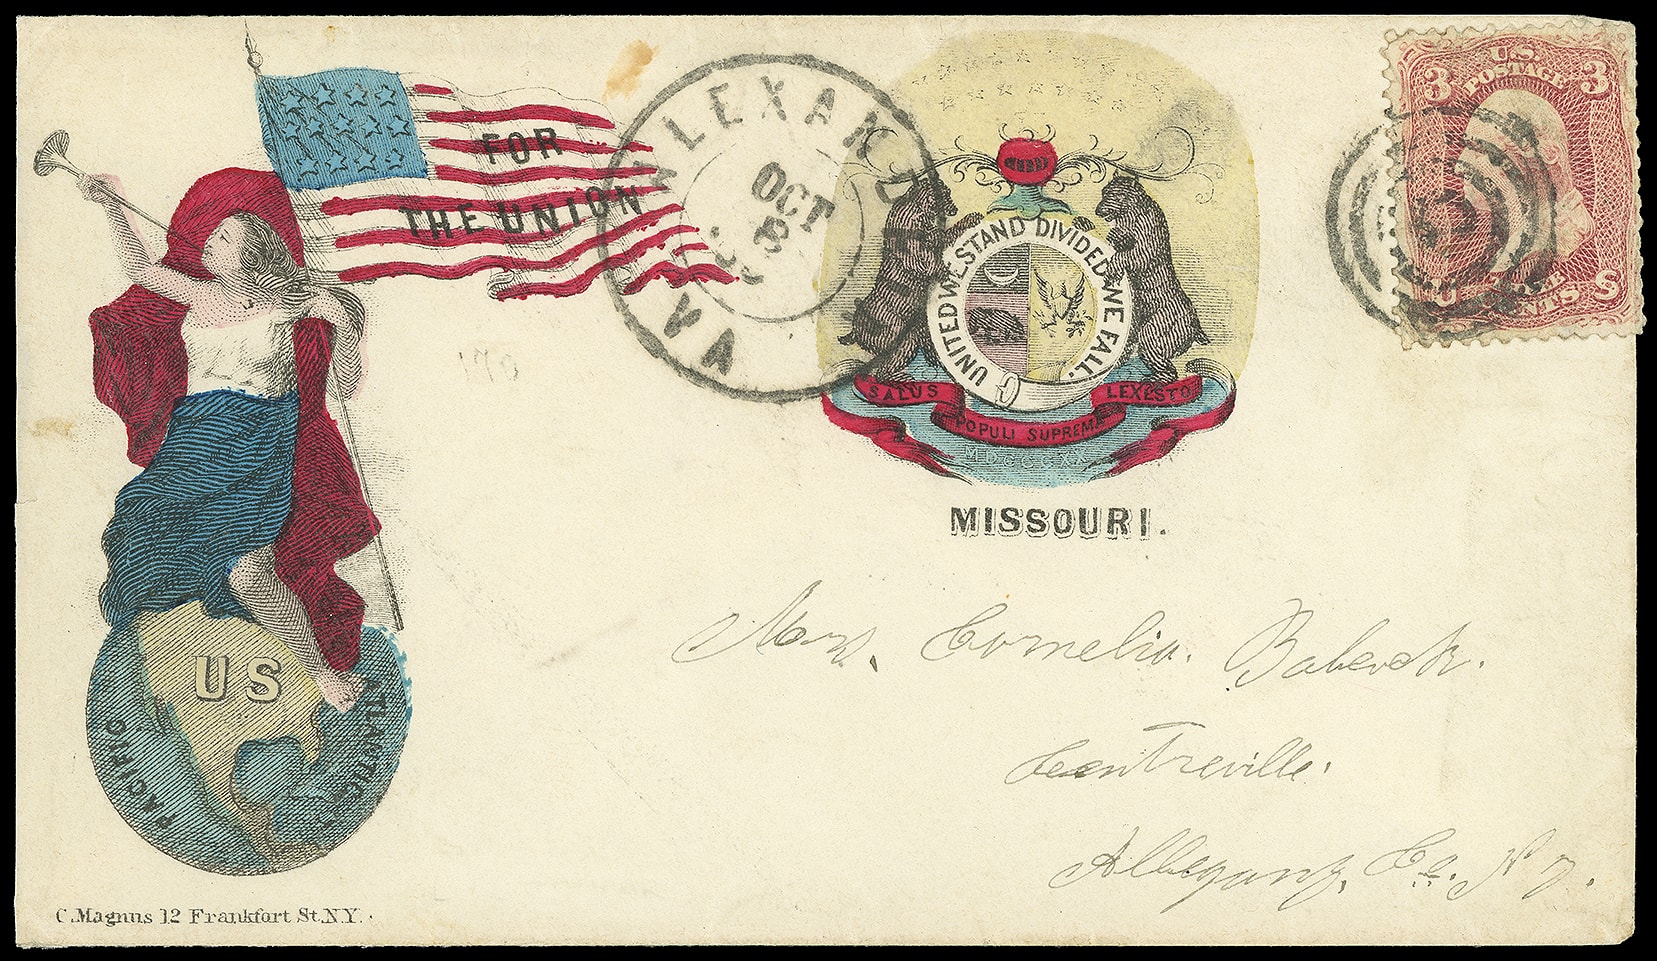 FOR
THE UNION
ALEXANDRIA
OCT
8
VA
UNITED WE STAND DIVIDED WE FALL.
SALUS POPULI SUPREMA LEX ESTO
MDCCCXX
MISSOURI.
U.S.
POSTAGE
3 3
U THREE CENTS S
Mrs. Cornelia. Babcock.
Centreville.
Allegany. Co. N Y.
US
PACIFIC
ATLANTIC
C. Magnus 12 Frankfort St. N.Y.